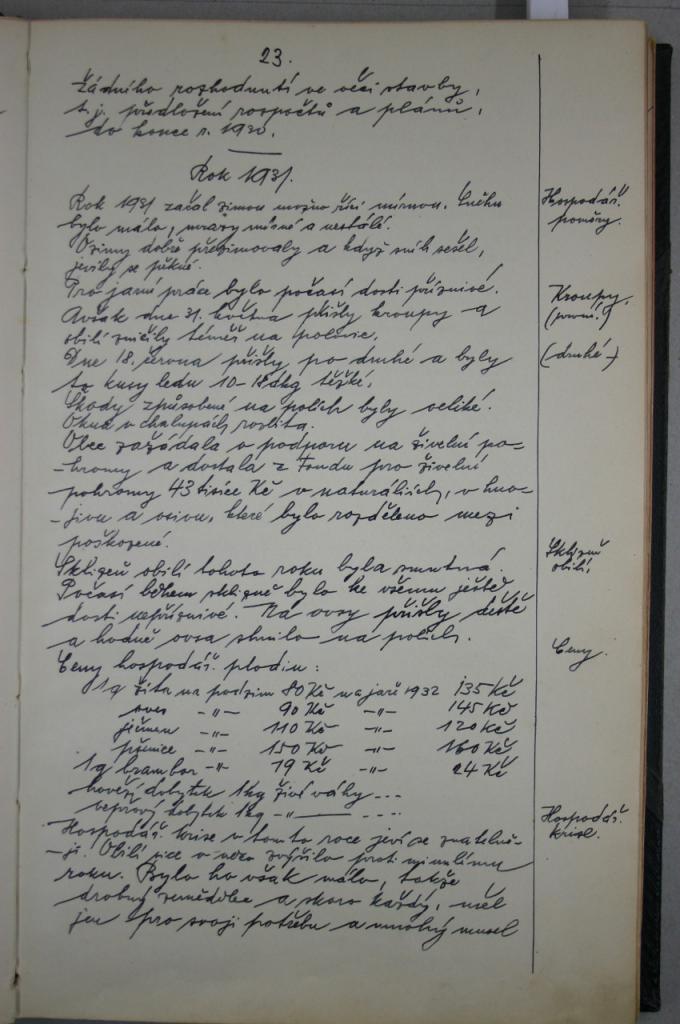 23.
žádného rozhodnutí ve věci stavby,
t.j. předložení rozpočtů a plánů,
do konce r. 1930.
Rok 1931.
Rok 1931 začal zimou možno říci mírnou. Sněhu
bylo málo, mrazy mírné a nestálé.
Ozimy dobře přezimovaly a když sníh sešel,
jevily se pěkně.
Pro jarní práce bylo počasí dosti příznivé.
Avšak dne 31. května přišly kroupy a
obilí zničily téměř na polovic.
Dne 18. června přišly po druhé a byly
to kusy ledu 10-18 dkg těžké.
Škody způsobené na polích byly veliké.
Okna v chalupách rozbita.
Obec zažádala o podporu na živelní po-
-hromy a dostala z Fondu pro živelní
pohromy 43 tisíce Kč v naturáliích, v hno-
-jivu a osivu, které bylo rozděleno mezi
poškozené.
Sklizeň obilí tohoto roku byla smutná.
Počasí během sklizně bylo ke všemu ještě
dosti nepříznivé. Na ovsy přišly deště
a hodně ovsa shnilo na polích.
Ceny hospodář. plodin:
1q žita na podzim 80 Kč na jaře 1932 135 Kč
oves -"- 90 Kč -"- 145 Kč
ječmen -"- 110 Kč -"- 120 Kč
pšenice -"- 150 Kč -"- 160 Kč
1q brambor -"- 19 Kč -"- 24 Kč
hovězí dobytek 1kg živé váhy ---
vepřový dobytek 1kg -"- ----
Hospodář. krise v tomto roce jeví se znatelně-
-ji. Obilí sice v ceně zvýšilo proti minulému
roku. Bylo ho však málo, takže
drobný zemědělec a skoro každý, měl
jen pro svoji potřebu a mnohý musel
Hospodář.
poměry.
Kroupy.
(první.)
(druhé -)
Sklizeň
obilí.
Ceny.
Hospodář.
krise.